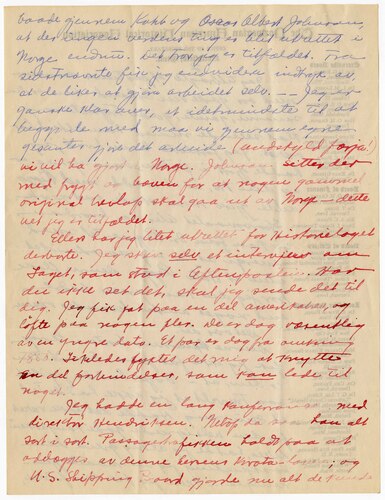 baade gjennem Kohb og Oscar Albert Johnsen,
at der ingen verdens ting er blit utrettet i
Norge endnu. Det tror jeg er tilfældet. Fra
sistnævnte fik jeg endvidere indtryk av,
at de liker at gjøre arbeidet selv. — Jeg er
ganske klar over, at idetmindste til at
begynde med maa vi gjennem egne
gesanter gjøre det arbeide (undskyld farja!)
vi vil ha gjort i Norge. Johnsen sitter der
med frygt oven for at nogen gammel
original verkap skal gaa ut av Norge — dette
vet jeg er tilfældet.
Ellers har jeg litet utrettet for Historielaget
derborte. Jeg skrev selv et interview om
Laget, som stod i Aftenposten. Har
du ikke set det, skal jeg sende det til
dig. Jeg fik fat paa en del amerikabrev, og
løfte paa nogen fler. De er dog væsentlig
av en yngre dato. Et par er dog fra omkring
Isteledes lyktes det mig at knytte
en del forbindelser, som kan lede til
noget.
Jeg hadde en lang konferanse med
direktør Hendriksen. Netop da saa han alt
sort i sort. Passagetrafikken holdt paa at
ødelægges av denne herrens kvota-lov, og
U.S. Shipping Board gjorde nu alt de kunde